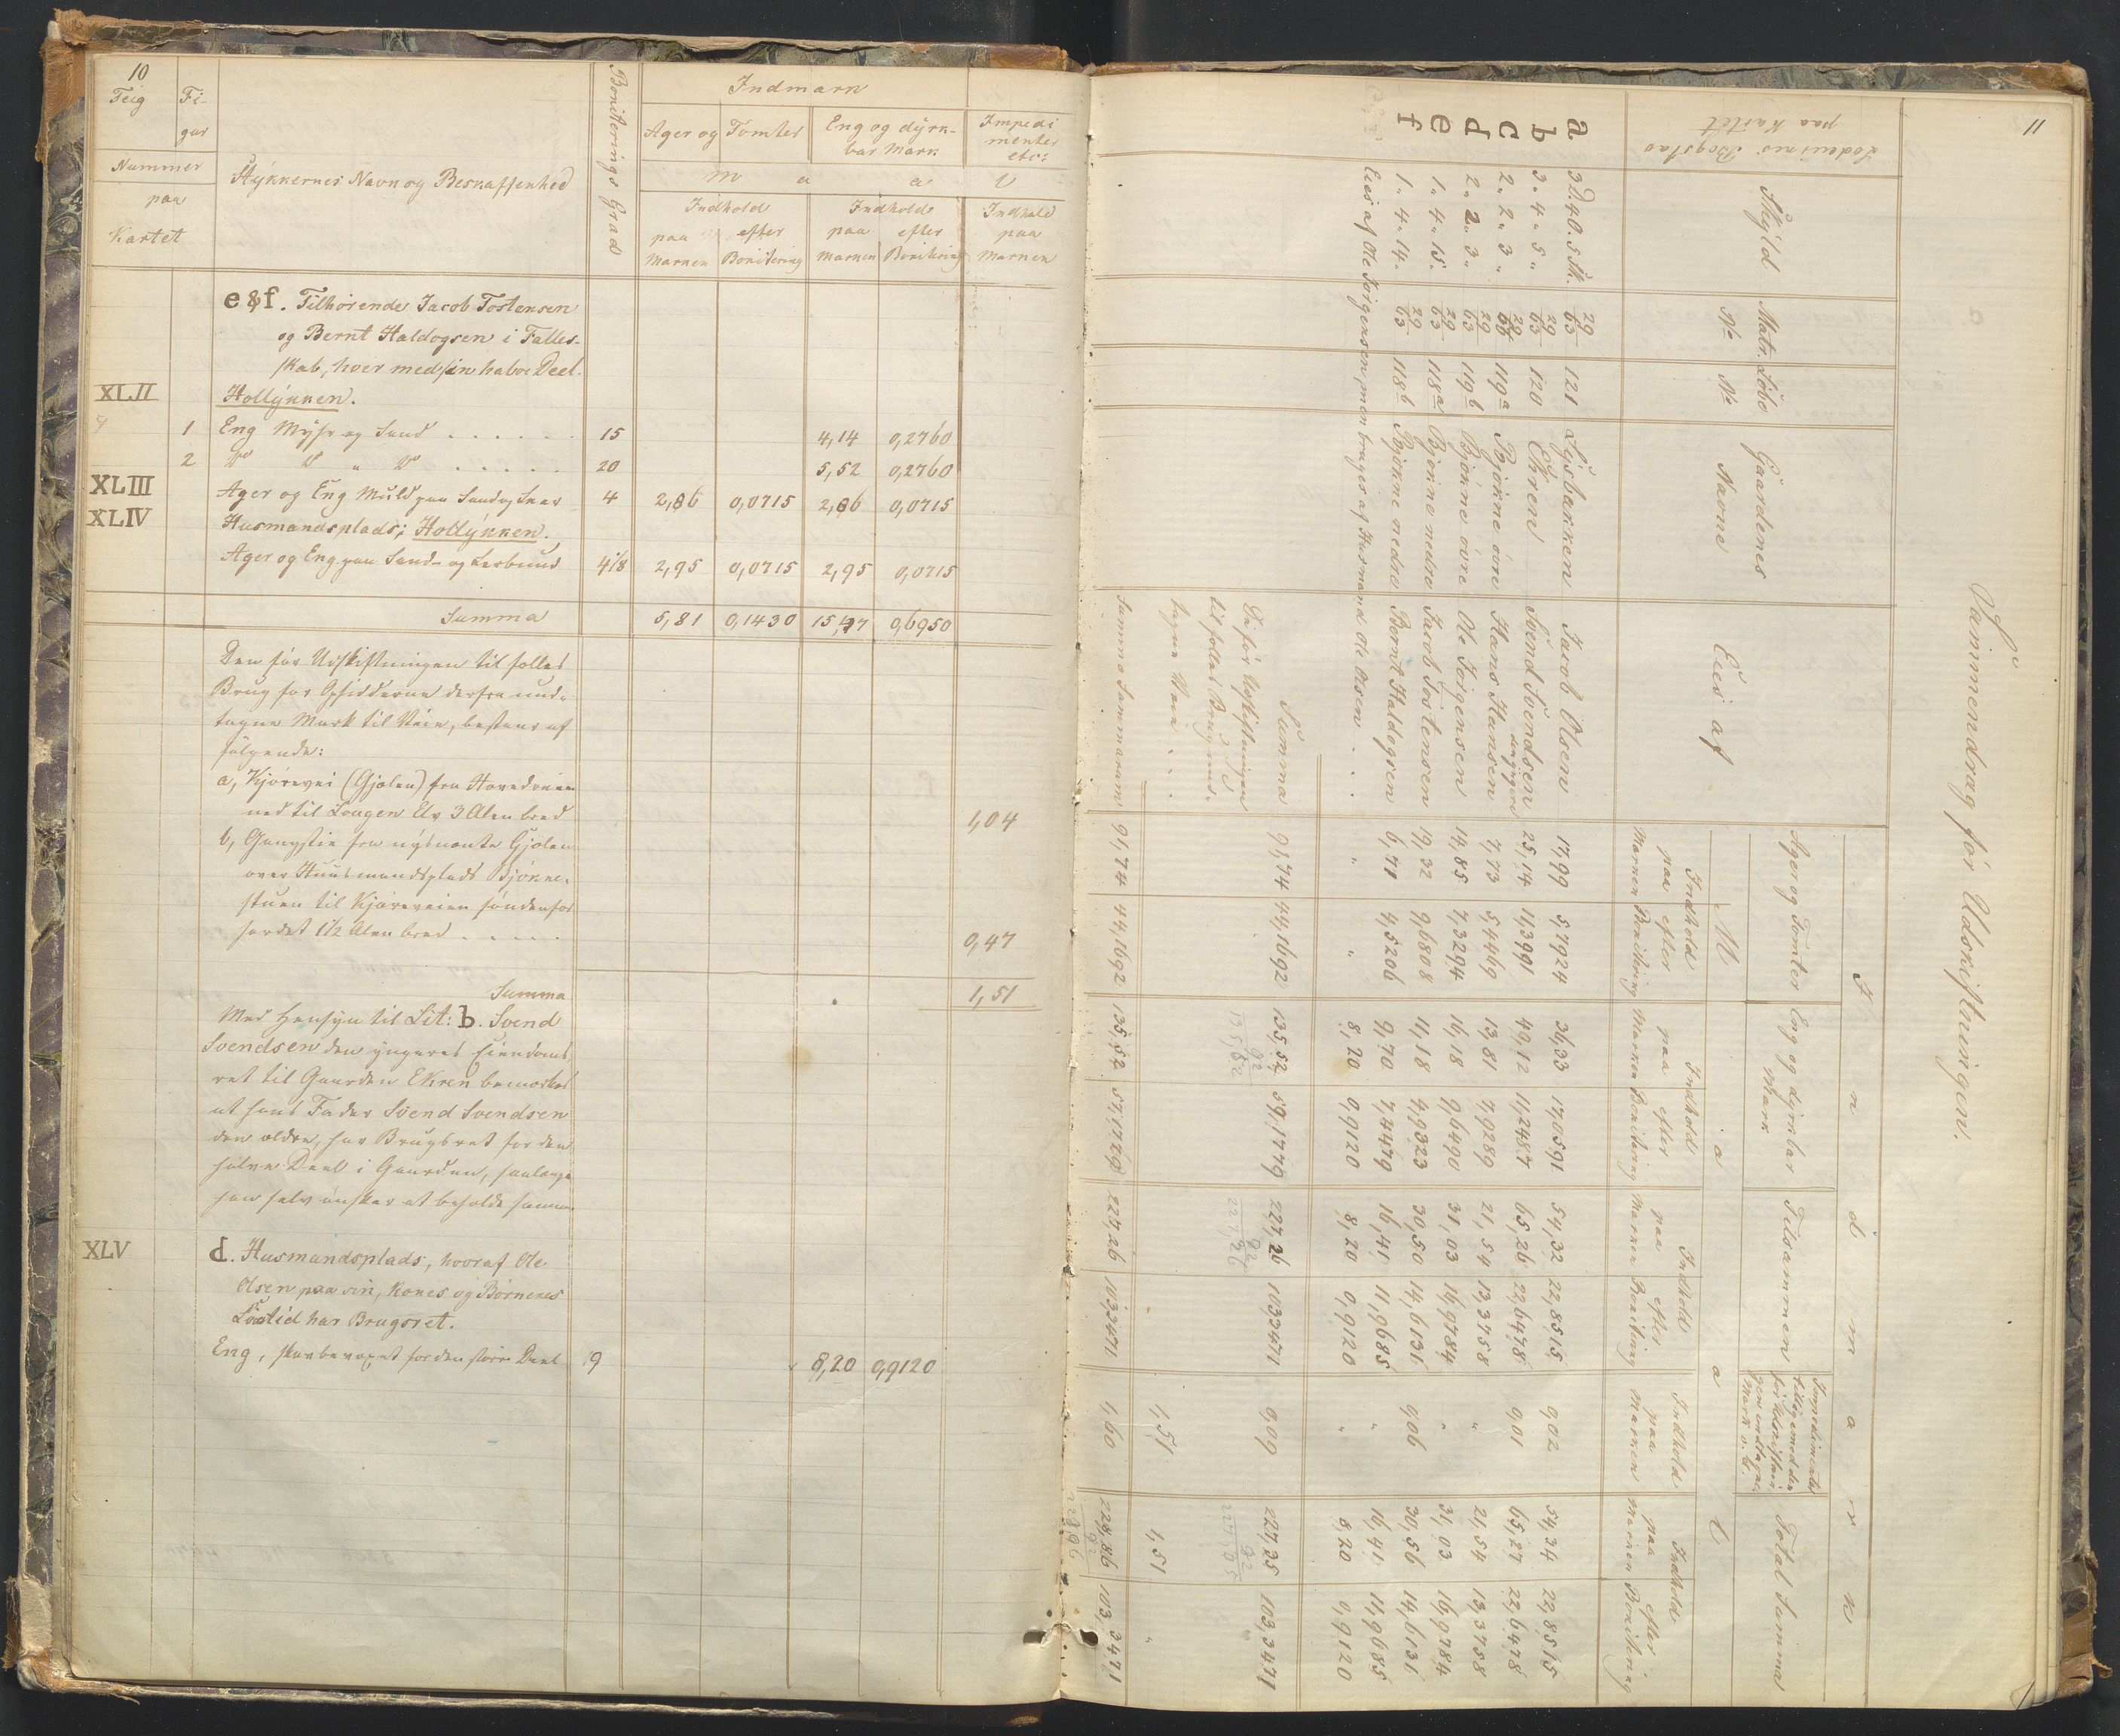 10
Teig Fi-
gur
Nummer
paa
Kartet
Stÿkkernes Navn og Beskaffenhed
Boniterings Grad
Indmark
Ager og Tomter Eng og dÿrk-
bar Mark Impedi
menter
etc:
M a a l
Indhold
paa efter
Marken Bonitering
Indhold
paa efter
Marken Bonitering
Indhold
paa
Marken
e & f. Tilhørende Jacob Tostensen
og Bernt Haldogsen i Fælles-
skab, hver med sin halve Deel.
XLII Hollÿkken.
1 Eng Mÿhr og Sand . . . . . . 15 4,14 0,2760
2 D° D° " D° . . . . . 20 5,52 0,2760
XLIII Ager og Eng Muld paa Sand og Leer 4 2,86 0,0715 2,86 0,0715
XLIV Husmandsplads; Hollÿkken.
Ager og Eng paa Sand- og Leerbund 4 1/8 2,95 0,0715 2,95 0,0715
Summa 5,81 0,1430 15,47 0,6950
Den før Udskiftningen til fælles
Brug for Opsidderne derfra und-
tagne Mark til Veie, bestaar af
følgende:
a, Kjørevei (Gjølen) fra Hovedveien
ned til Lougen Elv 3 Alen bred 1,04
b, Gangstie fra nÿsnævnte Gjølen
over Huusmandsplads Bjønne-
stuen til Kjøreveien søndenfor
1 1/2 Alen bred . . . . . 0,47
Summa 1,51
Med Hensÿn til Lit: b. Svend
Svendsen den ÿngeres Eiendoms-
ret til Gaarden Ekren bemærkes
at hans Fader Svend Svendsen
den ældre, har Brugsret for den
halve Deel i Gaarden, saalænge
han selv ønsker at beholde samme.
XLV d. Husmandsplads, hvoraf Ole
Olsen paa sin, Kones og Børnenes
Livstid har Brugsret.
Eng, skovbevoxet for den større Deel 9 8,20 0,9120
11
Sammendrag før Udskiftningen.
Lodeiernes Bogstav
paa Kartet
Skÿld
Matr.
N°
Løbe
N°
Gaardenes
Navne
Eies af
I n d m a r k
M a a l
Ager og Tomter
Eng og dÿrkbar
Mark
Tilsammen
Impedimenter
tilligemed den
før Udskiftnin-
gen undtagne
Mark o. s.
Total Summa
Indhold
paa efter
Marken Bonitering
Indhold
paa efter
Marken Bonitering
Indhold
paa efter
Marken Bonitering
Indhold
paa
Marken
Indhold
paa efter
Marken Bonitering
a 3 D. 4 O. 5 Sk. 29/63 121 Lÿsbakken Jacob Olsen 17,99 5,7924 36,33 17,0591 54,32 22,8515 0,02 54,34 22,8515
b 3 " 4 " 5 " 29/63 120 Ekren Svend Svendsen den ÿngere 25,14 11,3991 40,12 11,2487 65,26 22,6478 0,01 65,27 22,6478
c 2 " 2 " 3 " 119a Bjønne øvre Hans Hansen 7,73 5,4469 13,81 7,9289 21,54 13,3758 " 21,54 13,3758
d 2 " 2 " 3 " 29/63 119b Bjønne øvre Ole Jørgensen 14,85 7,3294 16,18 9,6490 31,03 16,9784 " 31,03 16,9784
e 1 " 4 " 15 " 29/63 118a Bjønne nedre Jacob Tostensen 19,32 9,6808 11,18 4,9323 30,50 14,6131 0,06 30,56 14,6131
f 1 " 4 " 14 " 29/63 118b Bjønne nedre Bernt Haldogsen 6,71 4,5206 9,70 7,4479 16,41 11,9685 " 16,41 11,9685
Eies af Ole Jørgensen, men bruges af Husmand Ole Olsen . . " " 8,20 0,9120 8,20 0,9120 " 8,20 0,9120
Summa 91,74 44,1692 135,52 59,1779 227,26 103,3471 0,09 227,35 103,3471
De før Udskiftningen
til fælles Brug und-
tagne Veie . . . 1,51 1,51 "
Summa Summarum 91,74 44,1692 135,52 59,1779 227,26 103,3471 1,60 228,86 103,3471